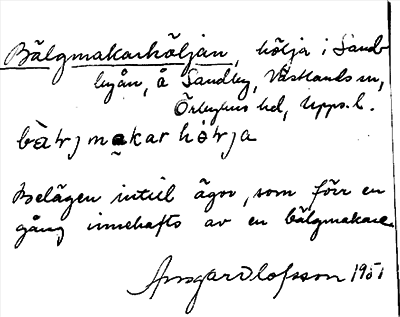 Bälgmakarhöljan, hölja i Sand-
byån, å Sandby, Västlands sn,
Örbyhus hd, Upps. l.
bàrjmakarhörja
Belägen intill ägor, som förr en
gång innehafts av en bälgmakare
Ansgar Olofsson 1951